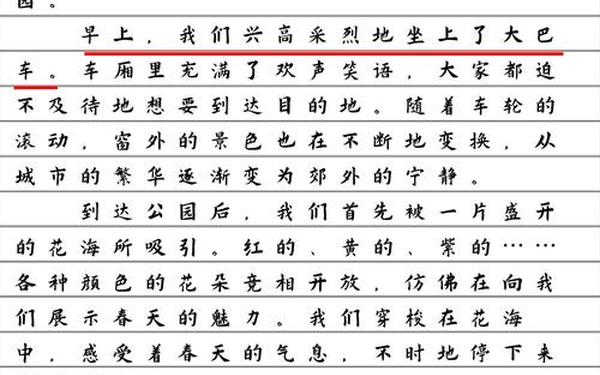 园。
早上，我们兴高采烈地坐上了大巴
车。车厢里充满了欢声笑语，大家都迫
不及待地想要到达目的地。随着车轮的
滚动，窗外的景色也在不断地变换，从
城市的繁华逐渐变为郊外的宁静。
到达公园后，我们首先被一片盛开
的花海所吸引。红的、黄的、紫的……
各种颜色的花朵竞相开放，仿佛在向我
们展示春天的魅力。我们穿梭在花海
中，感受着春天的气息，不时地停下来